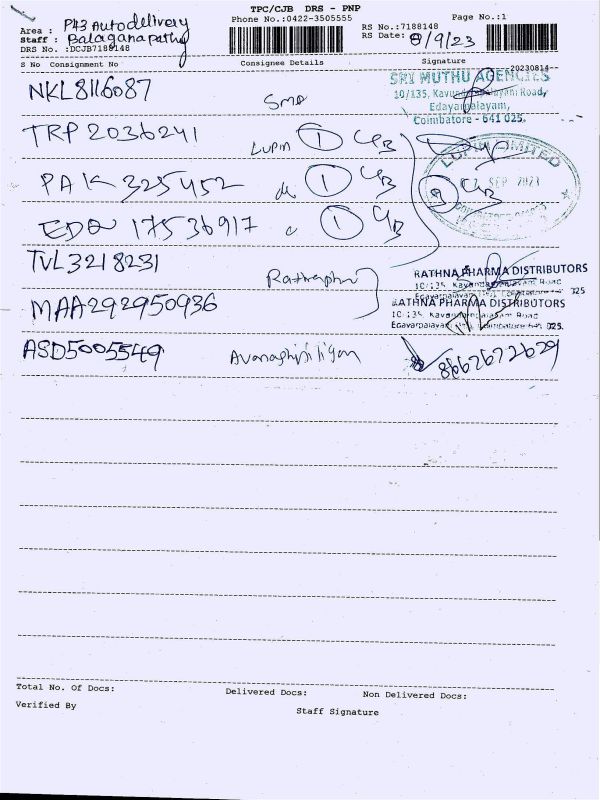 TPC/CJB DRS - PNP
Area : P43 Autodelivery
Phone No.:0422-3505555
RS No.:7188148
Page No.:1
Staff : Balaganapathy
RS Date: 8/9/23
DRS No. :DCJB7188148
S No Consignment No
Consignee Details
Signature
20230814
NKL8116087
SRI MUTHU AGENCIES
10/135, Kavundampalayam Road,
Edayarpalayam,
Coimbatore - 641 025.
TRP 2036241
Lupin 1
LUPIN LIMITED
PAK 325452
do 1
SEP 2023
EDQ 17536917
1
TVL3218231
RATHNA PHARMA DISTRIBUTORS
10/135 Kavundampalayam Road
MAA292950936
RATHNA PHARMA DISTRIBUTORS
10/135, Kavundampalayam Road
Edayarpalayam Coimbatore-641 025.
ASD5005549
8662672629
Total No. Of Docs:
Delivered Docs:
Non Delivered Docs:
Verified By
Staff Signature